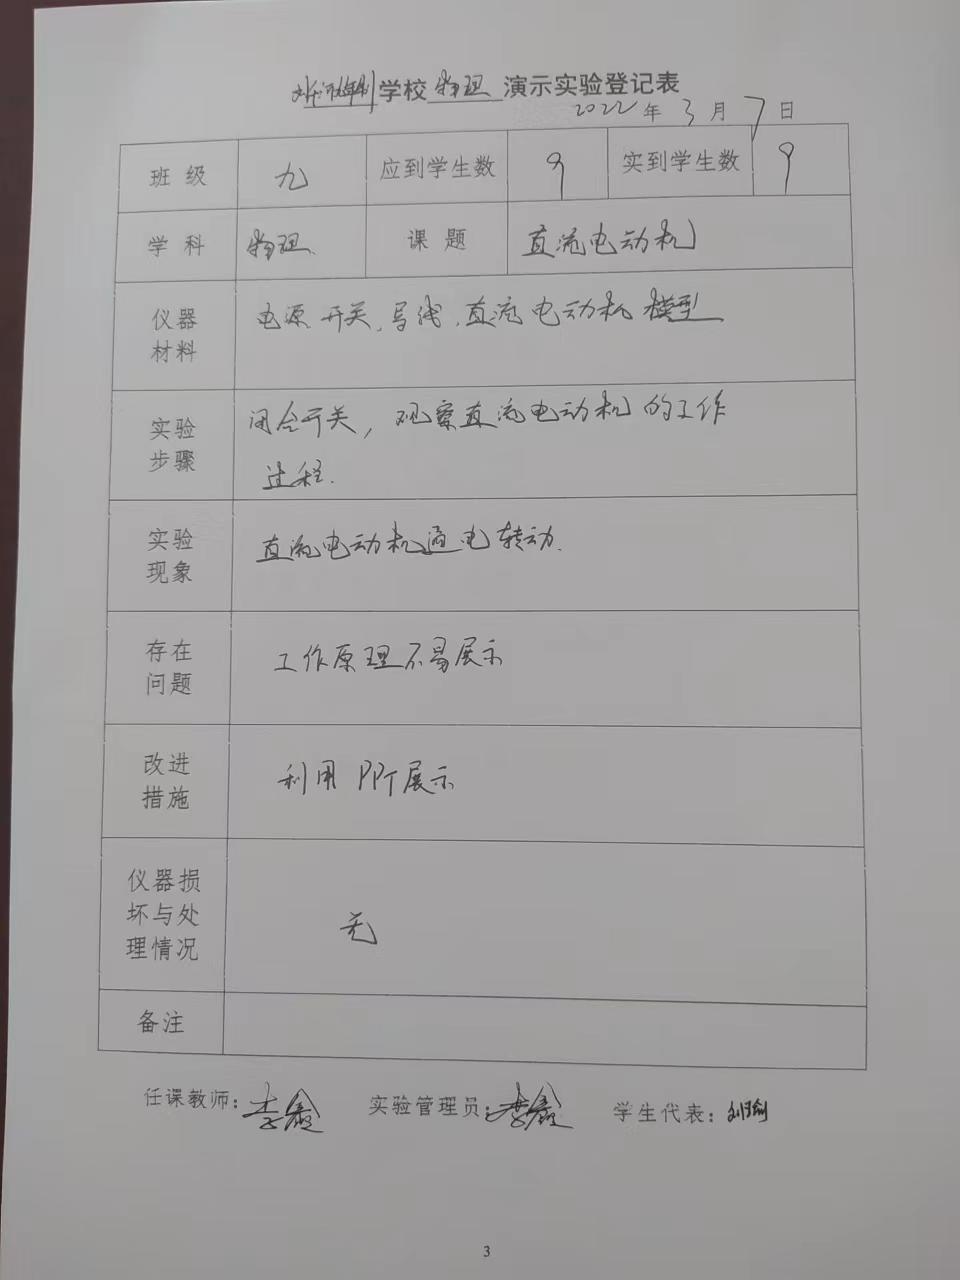 学校 物理 演示实验登记表
2022年3月7日
班级 九 应到学生数 9 实到学生数 9
学科 物理. 课题 直流电动机
仪器材料 电源 开关, 导线, 直流电动机模型
实验步骤 闭合开关, 观察直流电动机的工作
过程.
实验现象 直流电动机通电转动.
存在问题 工作原理不易展示
改进措施 利用PPT展示
仪器损坏与处理情况 无
备注
任课教师: 李鑫 实验管理员: 李鑫 学生代表: 刘
3